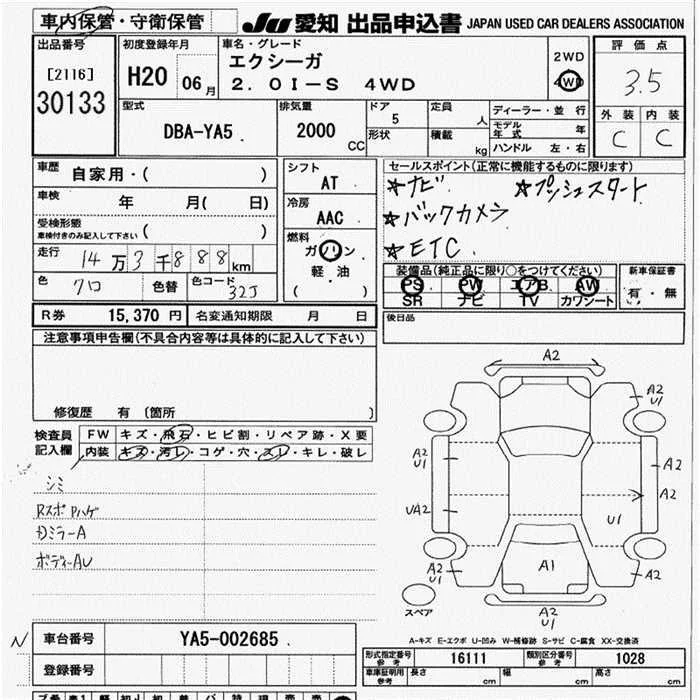 車内保管・守衛保管
JU 愛知 出品申込書 JAPAN USED CAR DEALERS ASSOCIATION
出品番号
[2116]
30133
初度登録年月
H20 06月
車名・グレード
エクシーガ
2.0I-S 4WD
2WD
4WD
評価点
3.5
外装 内装
C C
型式
DBA-YA5
排気量
2000
CC
ドア
5
形状
定員
人
積載
kg
ディーラー・並行
モデル年式 年
ハンドル 左・右
車歴
自家用・( )
車検
年 月( 日)
受検形態
車検付きのみ記入して下さい ( )
走行
14万3千888km
色
クロ
色替
色コード
32J
シフト
AT
冷房
AAC
燃料
ガソリン
軽・油
( )
セールスポイント(正常に機能するものに限ります)
☆ナビ ☆プッシュスタート
☆バックカメラ
☆ETC
装備品(純正品に限り○をつけてください)
PS PW エアB AW
SR ナビ TV カワシート
新車保証書
有・無
R券 15,370 円
名変通知期限 月 日
後日品
注意事項申告欄(不具合内容等は具体的に記入して下さい)
修復歴 有 〔箇所 〕
検査員記入欄
FW キズ・飛石・ヒビ割・リペア跡・X要
内装 キズ・汚レ・コゲ・穴・スレ・キレ・破レ
シミ
Rスポ Pハゲ
Dミラ-A
ボディ-AU
A2
A2
U1
A2
U1
A2
UA2
U1
A2
U1
A1
A2
A2
U1
スペア
A-キズ E-エクボ U-凹み W-補修跡 S-サビ C-腐食 XX-交換済
N
車台番号
YA5-002685
登録番号
形式指定番号
参考
16111
類別区分番号
参考
1028
車庫証明用
参考
長さ cm
幅 cm
高さ cm